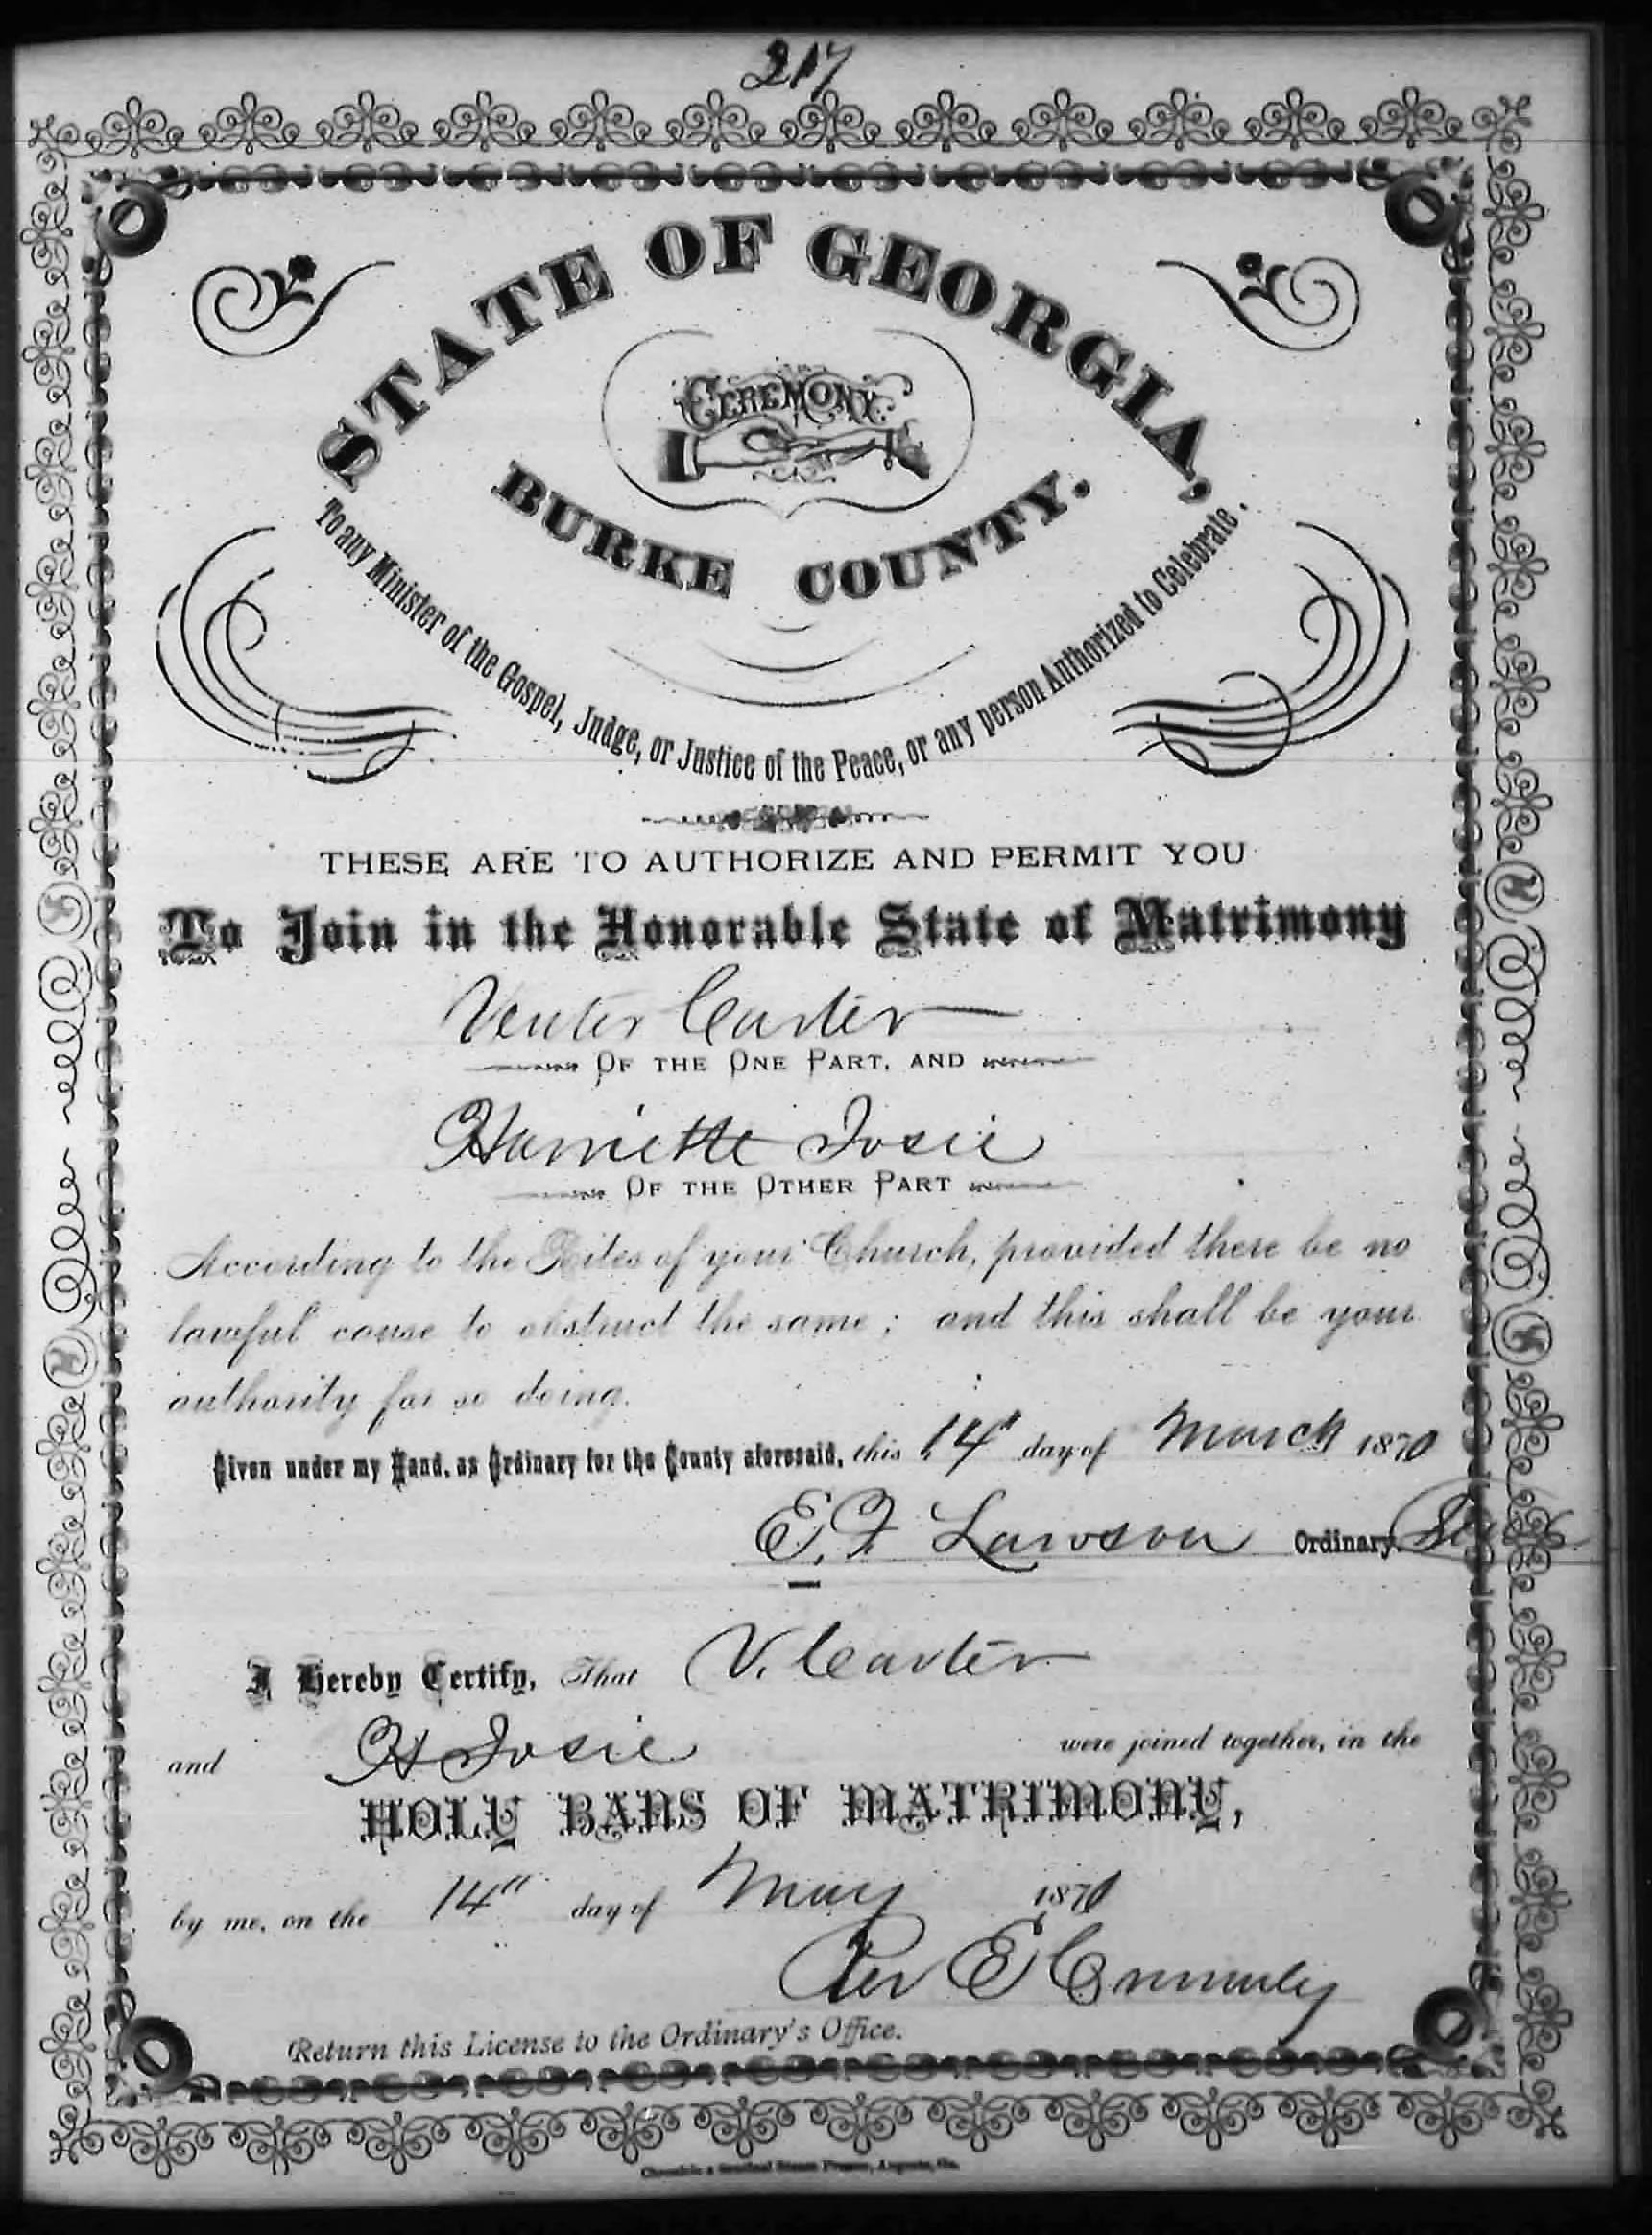 217
STATE OF GEORGIA,
CEREMONY.
BURKE COUNTY.
To any Minister of the Gospel, Judge, or Justice of the Peace, or any person Authorized to Celebrate.
THESE ARE TO AUTHORIZE AND PERMIT YOU
To Join in the Honorable State of Matrimony
Venter Carter
OF THE ONE PART, AND
Harriette Josie
OF THE OTHER PART
According to the Rites of your Church, provided there be no
lawful cause to obstruct the same; and this shall be your
authority for so doing.
Given under my Hand, as Ordinary for the County aforesaid, this 14" day of March 1870
E. F. Lawson Ordinary.
I Hereby Certify, That V. Carter
and H Josie were joined together, in the
HOLY BANS OF MATRIMONY,
by me, on the 14" day of May 187
Rev E
Return this License to the Ordinary's Office.
Chronicle & Sentinel Steam Presses, Augusta, Ga.